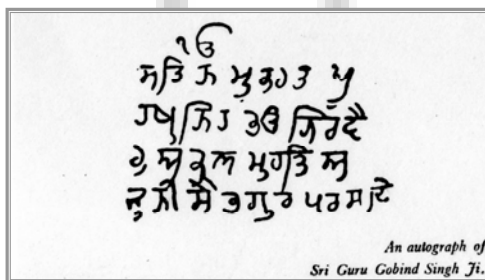 ੧ਓ
ਸਤਿ ਨ ਮੁ ਕਰਤ ਪੁ
ਰਖੁ ਨਿਰ ਭਉ ਨਿਰਵੈ
ਰੁ ਅਕਲ ਮੁਰਤਿ ਅ
ਜੁਨੀ ਸੈ ਭ ਗੁਰ ਪਰਸਦਿ
An autograph of
Sri Guru Gobind Singh Ji.